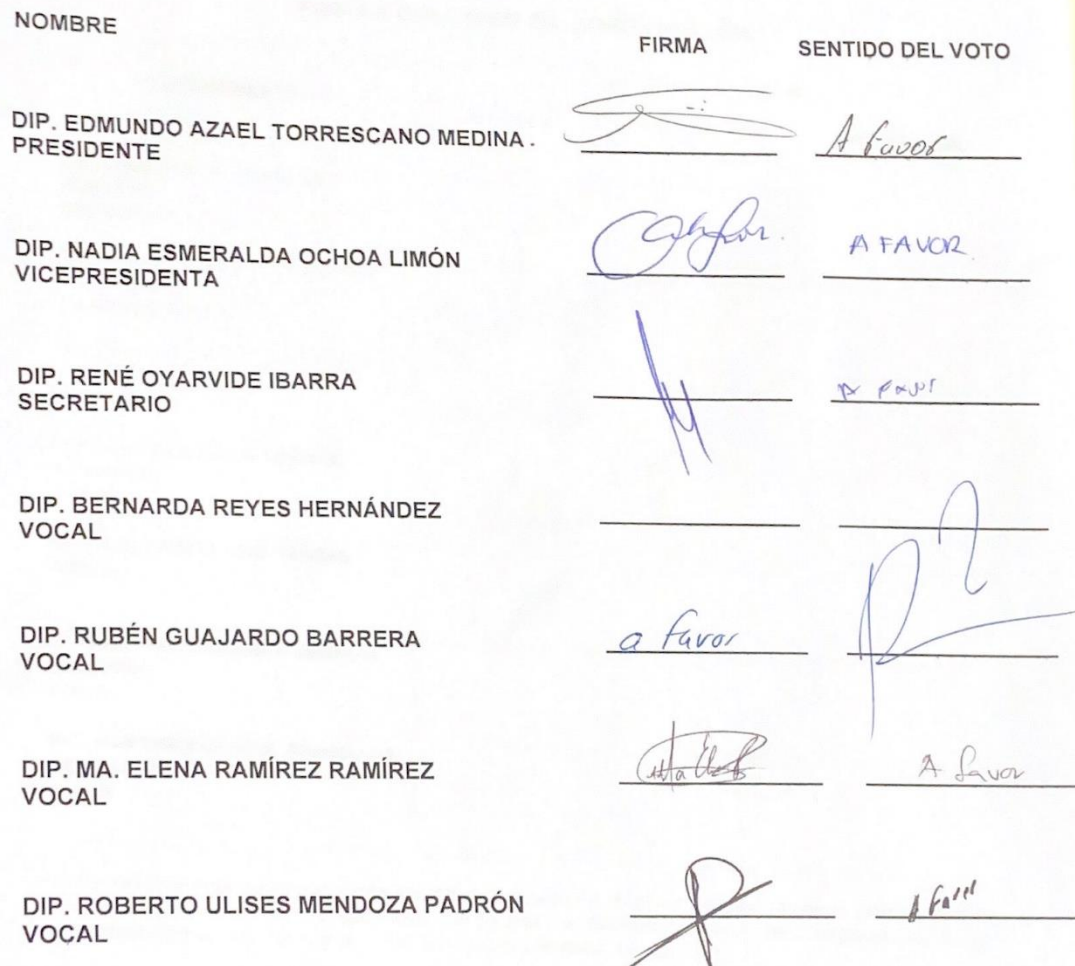 NOMBRE
FIRMA SENTIDO DEL VOTO
DIP. EDMUNDO AZAEL TORRESCANO MEDINA .
PRESIDENTE
A favor
DIP. NADIA ESMERALDA OCHOA LIMÓN
VICEPRESIDENTA
A FAVOR
DIP. RENÉ OYARVIDE IBARRA
SECRETARIO
A
DIP. BERNARDA REYES HERNÁNDEZ
VOCAL
DIP. RUBÉN GUAJARDO BARRERA
VOCAL
a favor
DIP. MA. ELENA RAMÍREZ RAMÍREZ
VOCAL
A favor
DIP. ROBERTO ULISES MENDOZA PADRÓN
VOCAL
A